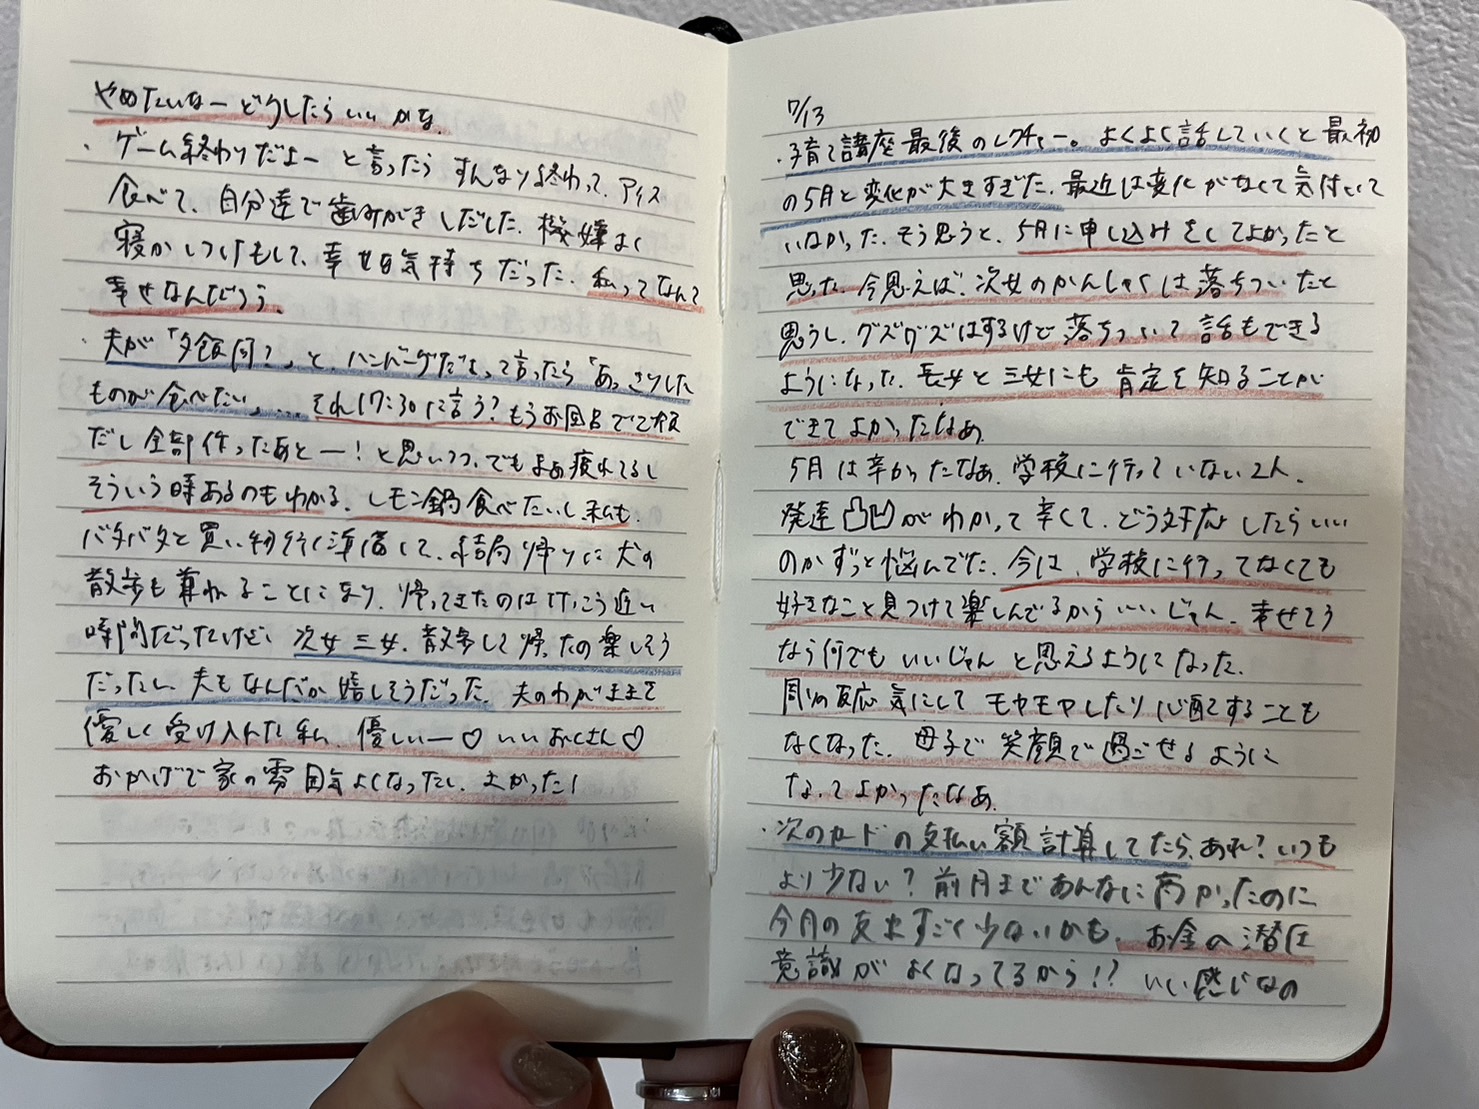 やめたいなー どうしたらいいかな
・ゲーム終わりだよー と言ったら すんなり終わって、アイス
食べて、自分達で歯みがきしだした。機嫌よく
寝かしつけもして、幸せな気持ちだった。私ってなんて
幸せなんだろう。
・夫が「夕飯何？」と、ハンバーグだよって言ったら「あっさりした
ものが食べたい」... それ17:30に言う？もうお風呂で
だし全部作ったあとー！と思いつつ、でもまぁ疲れてるし
そういう時あるのもわかる。レモン鍋食べたいし、私も。
バタバタと買い物行く準備して、結局帰りに犬の
散歩も兼ねることになり、帰ってきたのはけっこう遅い
時間だったけど、次女三女、散歩して帰ったの楽しそう
だったし、夫もなんだか嬉しそうだった。夫のわがままを
優しく受け入れた私、優しいー♡ いいおくさん♡
おかげで家の雰囲気よくなったし、よかった！
7/13
・子育て講座最後のレクチャー。よくよく話していくと最初
の5月と変化が大きすぎた。最近は変化がなくて気付いて
いなかった。そう思うと、5月に申し込みをしてよかったと
思った。今思えば、次女のかんしゃくは落ちついたと
思うし、グズグズはするけど落ちついて話もできる
ようになった。長女と三女にも肯定を知ることが
できてよかったなぁ。
5月は辛かったなぁ。学校に行っていない2人。
発達凸凹がわかって辛くて、どう対応したらいい
のかずっと悩んでた。今は、学校に行ってなくても
好きなこと見つけて楽しんでるからいいじゃん。幸せそう
なら何でもいいじゃんと思えるようになった。
周りの反応気にしてモヤモヤしたり心配することも
なくなった。母子で笑顔で過ごせるように
なってよかったなぁ。
・次のカードの支払い額計算してたら、あれ？いつも
より少ない？前月まであんなに高かったのに
今月の支出すごく少ないかも。お金の潜在
意識がよくなってるから！？いい感じなの